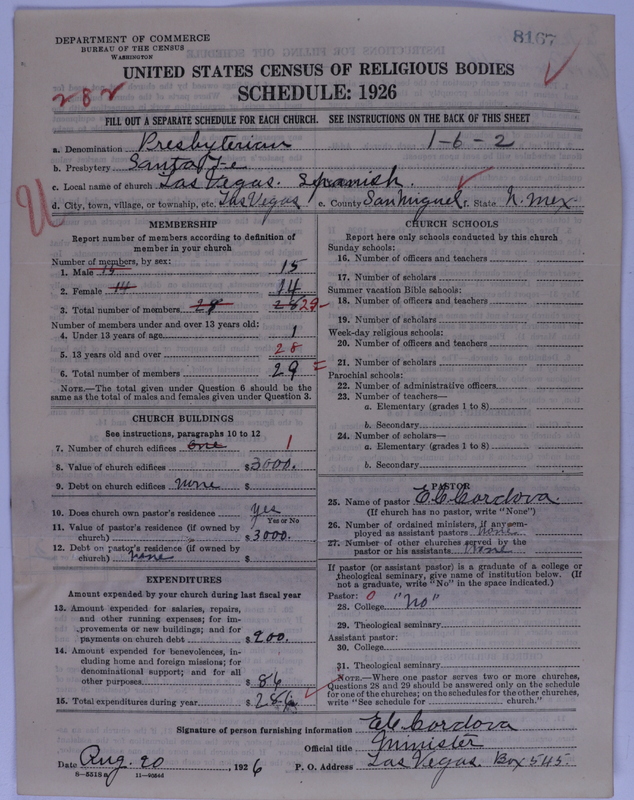 DEPARTMENT OF COMMERCE
BUREAU OF THE CENSUS
WASHINGTON
8167
UNITED STATES CENSUS OF RELIGIOUS BODIES
282
SCHEDULE: 1926
FILL OUT A SEPARATE SCHEDULE FOR EACH CHURCH. SEE INSTRUCTIONS ON THE BACK OF THIS SHEET
a. Denomination Presbyterian 1-6-2
b. Presbytery Santa Fe
c. Local name of church Las Vegas. Spanish.
d. City, town, village, or township, etc. Las Vegas e. County San Miguel f. State N. Mex.
MEMBERSHIP
Report number of members according to definition of member in your church
Number of members, by sex:
1. Male 15 15
2. Female 14 14
3. Total number of members 28 28 29
Number of members under and over 13 years old:
4. Under 13 years of age 1
5. 13 years old and over 28
6. Total number of members 29
NOTE.—The total given under Question 6 should be the same as the total of males and females given under Question 3.
CHURCH BUILDINGS
See instructions, paragraphs 10 to 12
7. Number of church edifices one 1
8. Value of church edifices $3000.
9. Debt on church edifices none $
10. Does church own pastor's residence yes
Yes or No
11. Value of pastor's residence (if owned by church) $3000.
12. Debt on pastor's residence (if owned by church) none $
EXPENDITURES
Amount expended by your church during last fiscal year
13. Amount expended for salaries, repairs, and other running expenses; for improvements or new buildings; and for payments on church debt $200.
14. Amount expended for benevolences, including home and foreign missions; for denominational support; and for all other purposes $86
15. Total expenditures during year $286
CHURCH SCHOOLS
Report here only schools conducted by this church
Sunday schools:
16. Number of officers and teachers
17. Number of scholars
Summer vacation Bible schools:
18. Number of officers and teachers
19. Number of scholars
Week-day religious schools:
20. Number of officers and teachers
21. Number of scholars
Parochial schools:
22. Number of administrative officers
23. Number of teachers—
a. Elementary (grades 1 to 8)
b. Secondary
24. Number of scholars—
a. Elementary (grades 1 to 8)
b. Secondary
PASTOR
25. Name of pastor E C Cordova
(If church has no pastor, write "None")
26. Number of ordained ministers, if any employed as assistant pastors none
27. Number of other churches served by the pastor or his assistants None
If pastor (or assistant pastor) is a graduate of a college or theological seminary, give name of institution below. (If not a graduate, write "No" in the space indicated.)
Pastor: 0
28. College "No"
29. Theological seminary
Assistant pastor:
30. College
31. Theological seminary
NOTE.—Where one pastor serves two or more churches, Questions 28 and 29 should be answered only on the schedule for one of the churches; on the schedules for the other churches, write "See schedule for church."
Signature of person furnishing information E C Cordova
Official title Minister
Date Aug. 20, 1926 P. O. Address Las Vegas. Box 545.
8-5518a 11-40344